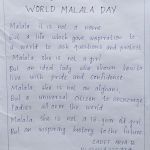 WORLD MALALA DAY
Malala it is not a name
But a life which gave inspiration to
a world to ask questions and protest
Malala, she is not a girl
But an ideal lady who shows how to
live with pride and confidence
Malala, she is not an afghani
But a universal citizen to encourage
ladies all over the world
Malala, she is not a 16 year old girl
But an inspiring history to the future
CADET